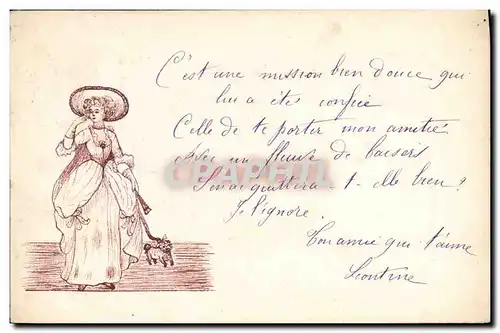 C'est une mission bien douce qui
lui a étés confiée
Celle de te porter mon amitié
Avec un fleuve de baisers
S'en acquittera-t-elle bien?
Je l'ignore.
Ton amie qui t'aime
Leontine
CPRPHIL